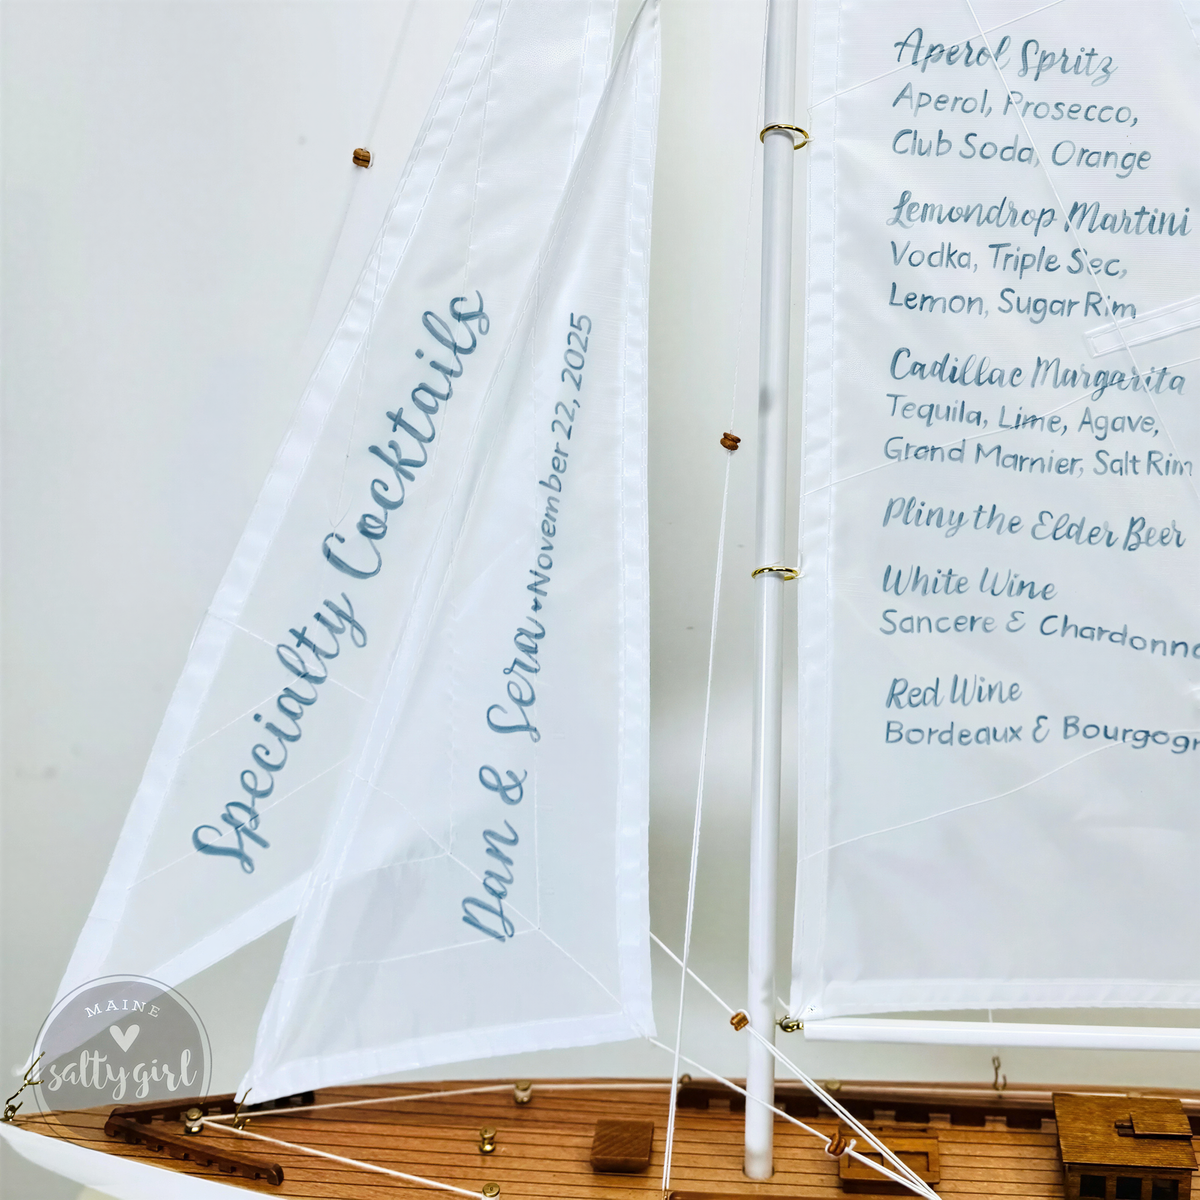 Specialty Cocktails
Dan & Sera ♥ November 22, 2025
Aperol Spritz
Aperol, Prosecco,
Club Soda, Orange
Lemondrop Martini
Vodka, Triple Sec,
Lemon, Sugar Rim
Cadillac Margarita
Tequila, Lime, Agave,
Grand Marnier, Salt Rim
Pliny the Elder Beer
White Wine
Sancere & Chardonn
Red Wine
Bordeaux & Bourgog
MAINE
salty girl